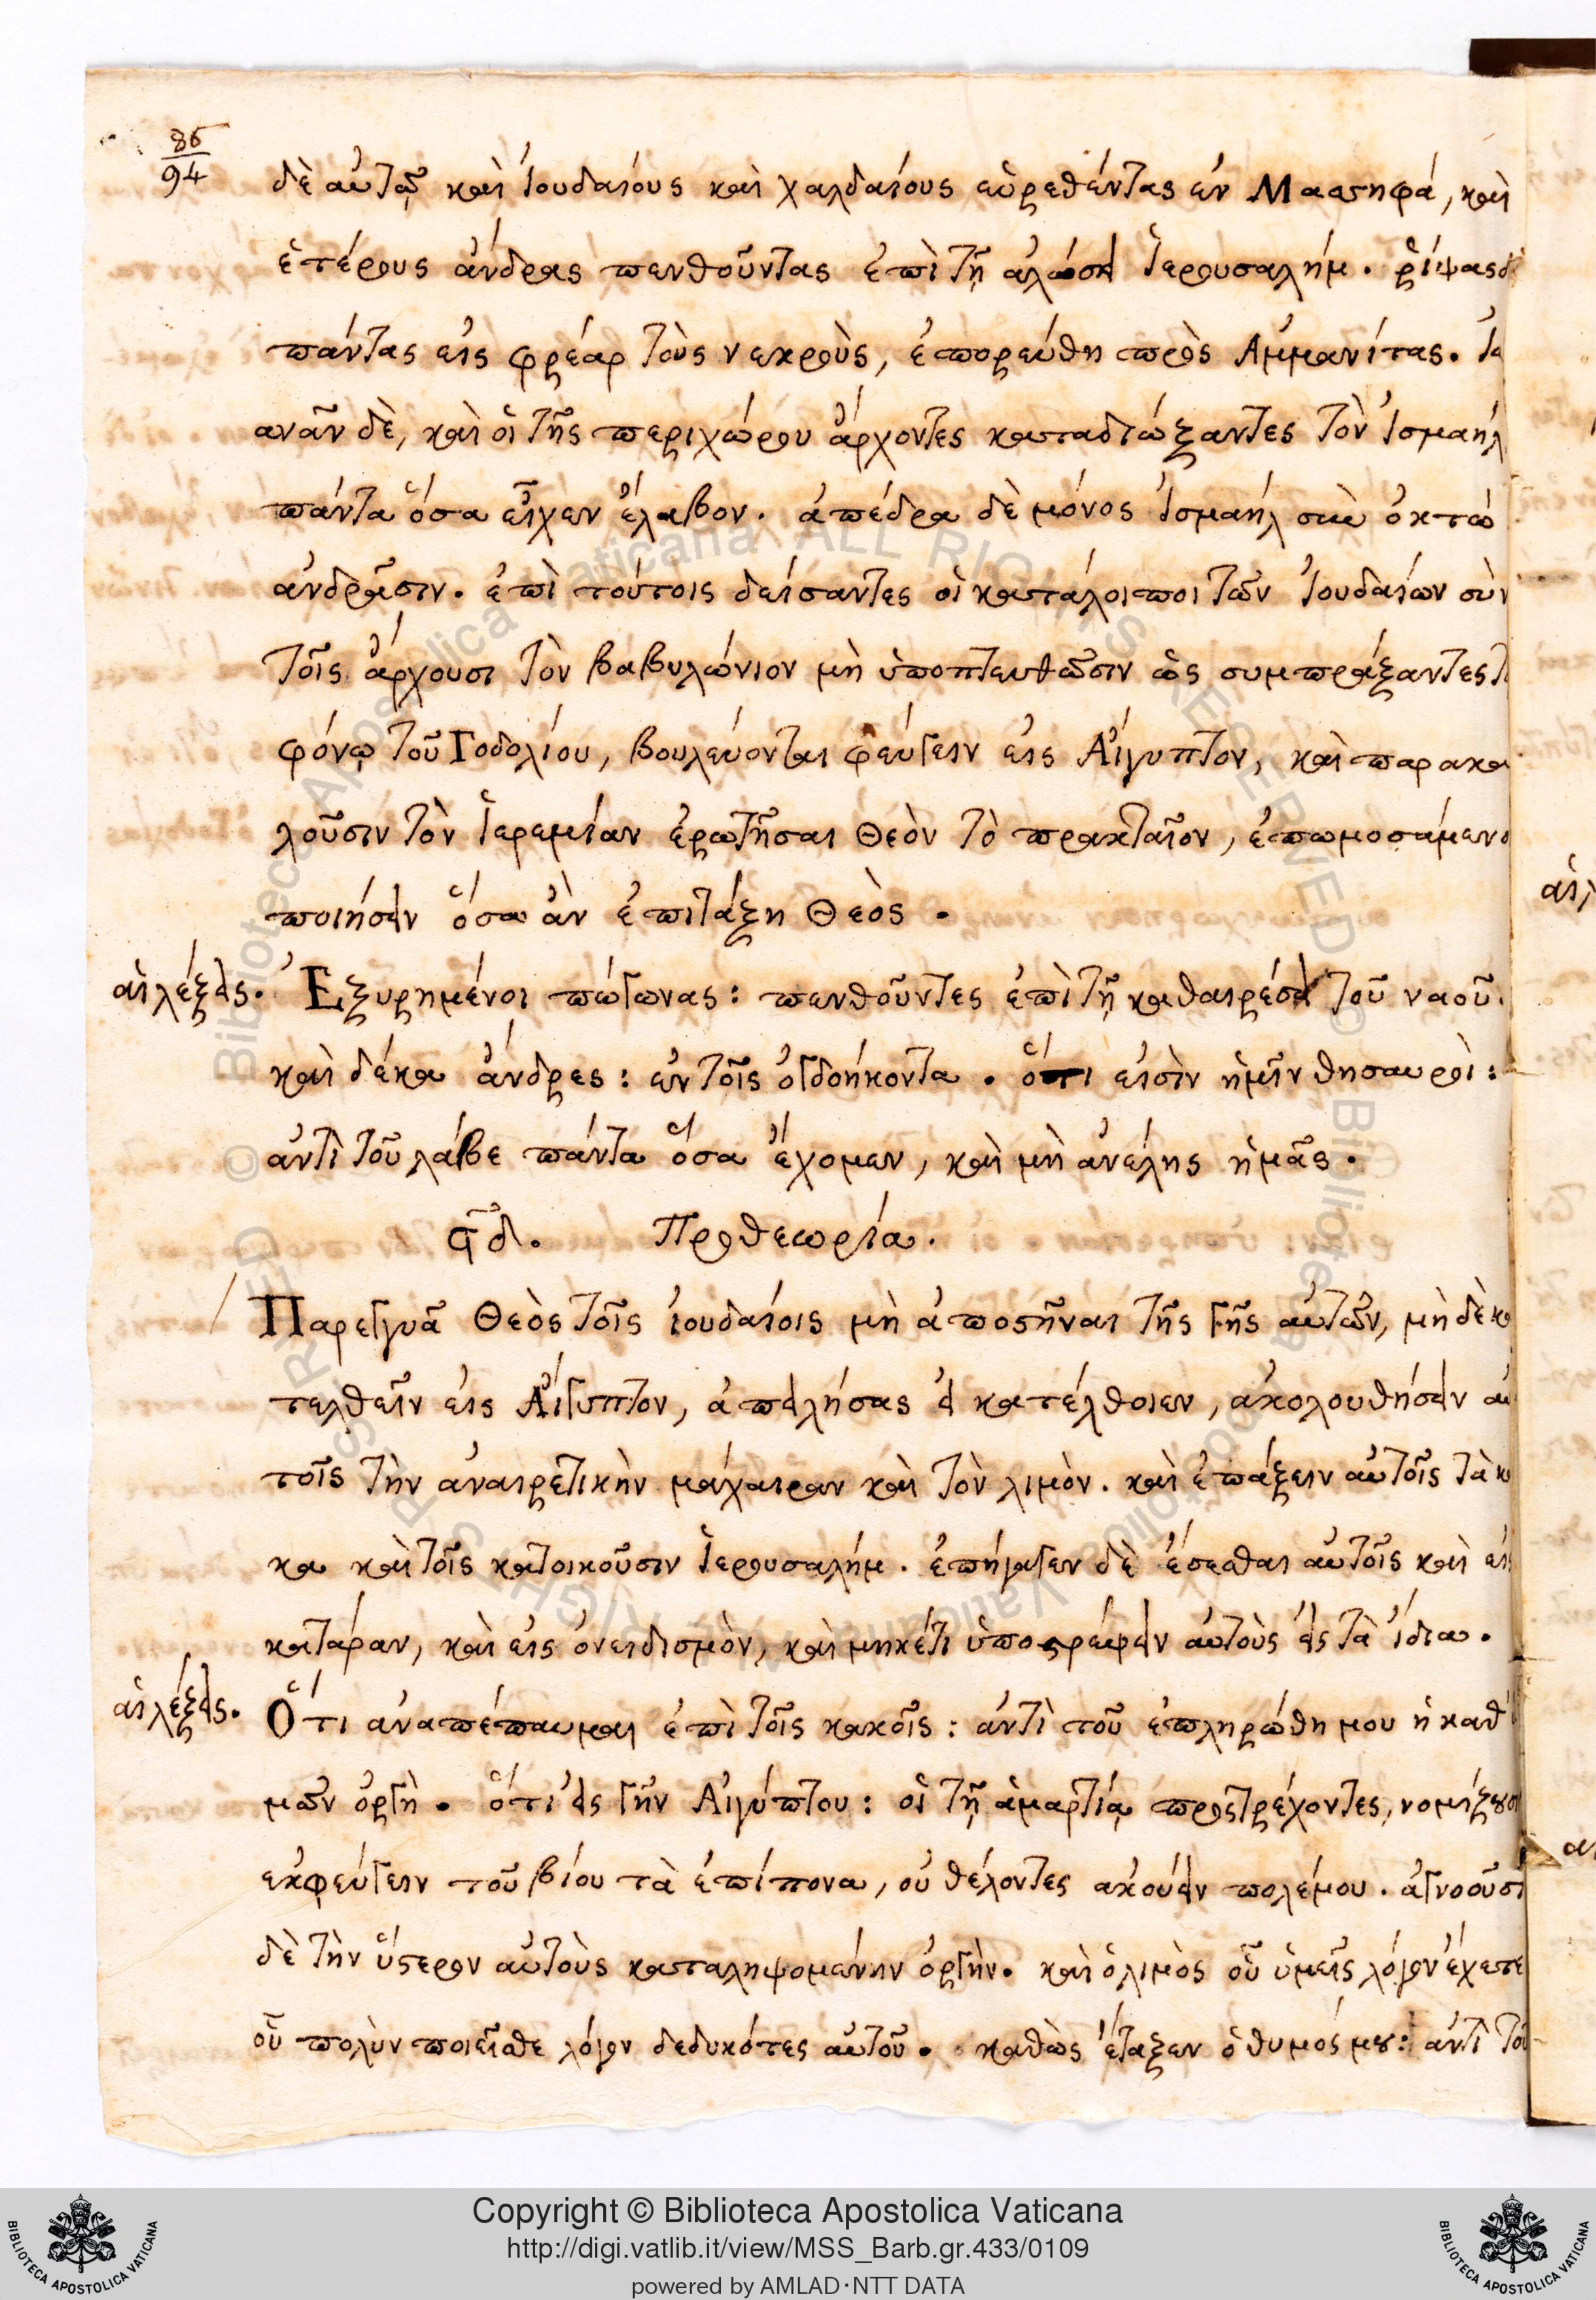 86
94
δὲ αὐτῷ καὶ Ἰουδαίους καὶ χαλδαίους εὑρεθέντας ἐν Μαασηφά, καὶ
ἑτέρους ἄνδρας πενθοῦντας ἐπὶ τῇ ἁλώσει Ἱερουσαλήμ. ῥίψας δ
πάντας εἰς φρέαρ τοὺς νεκροὺς, ἐπορεύθη πρὸς Ἀμμανίτας. Ἰω
ανὰν δὲ, καὶ οἱ τῆς περιχώρου ἄρχοντες καταδιώξαντες τὸν Ἰσμαὴλ
πάντα ὅσα εἶχεν ἔλαβον. ἀπέδρα δὲ μόνος Ἰσμαήλ σὺν ὀκτὼ
ἀνδρᾶσιν. ἐπὶ τούτοις δείσαντες οἱ κατάλοιποι τῶν Ἰουδαίων σὺν
τοῖς ἄρχουσι τὸν βαβυλώνιον μὴ ὑποπτευθῶσιν ὡς συμπράξαντες τ
φόνῳ τοῦ Γοδολίου, βουλεύονται φεύγειν εἰς Αἴγυπτον, καὶ παρακα
λοῦσιν τὸν Ἱερεμίαν ἐρωτῆσαι Θεὸν τὸ πρακταῖον, ἐπωμοσάμενο
ποιήσειν ὅσα ἂν ἐπιτάξη Θεὸς.
αἱ λέξεις. Ἐξυρημένοι πώγωνας: πενθοῦντες ἐπὶ τῇ καθαιρέσει τοῦ ναοῦ.
καὶ δέκα ἄνδρες: ἐν τοῖς ὀγδοήκοντα. ὅτι εἰσὶν ἡμῖν θησαυροὶ:
ἀντὶ τοῦ λάβε πάντα ὅσα ἔχομεν, καὶ μὴ ἀνέλης ἡμᾶς.
ϟδ. Προθεωρία.
Παρεγγυᾶ Θεὸς τοῖς ἰουδαίοις μὴ ἀποστῆναι τῆς γῆς αὐτῶν, μὴ δὲ κα
τελθεῖν εἰς Αἴγυπτον, ἀπειλήσας εἰ κατέλθοιεν, ἀκολουθήσειν αὐ
τοῖς τὴν ἀναιρετικὴν μάχαιραν καὶ τὸν λιμὸν. καὶ ἐπάξειν αὐτοῖς τὰ κα
κα καὶ τοῖς κατοικοῦσιν Ἱερουσαλήμ. ἐπήγαγεν δὲ ἔσεσθαι αὐτοῖς καὶ εἰς
κατάραν, καὶ εἰς ὀνειδισμὸν, καὶ μηκέτι ὑποστρέψειν αὐτοὺς εἰς τὰ ἴδια.
αἱ λέξεις. Ὅτι ἀναπέπαυμαι ἐπὶ τοῖς κακοῖς: ἀντὶ τοῦ ἐπληρώθη μου ἡ καθ ὑ
μῶν ὀργὴ. ὅτι εἰς γῆν Αἰγύπτου: οἱ τῇ ἁμαρτίᾳ προστρέχοντες, νομίζουσι
ἐκφεύγειν τοῦ βίου τὰ ἐπίπονα, οὐ θέλοντες ἀκούειν πολέμου. ἀγνοοῦσι
δὲ τὴν ὕστερον αὐτοὺς καταληψομένην ὀργὴν. καὶ ὁ λιμὸς οὗ ὑμεῖς λόγον ἔχετε
οὗ πολὺν ποιεῖσθε λόγον δεδυκότες αὐτοῦ. καθὼς ἔταξεν ὁ θυμός μου: ἀντὶ τοῦ
Copyright © Biblioteca Apostolica Vaticana
http://digi.vatlib.it/view/MSS_Barb.gr.433/0109
powered by AMLAD·NTT DATA
BIBLIOTECA APOSTOLICA VATICANA
BIBLIOTECA APOSTOLICA VATICANA